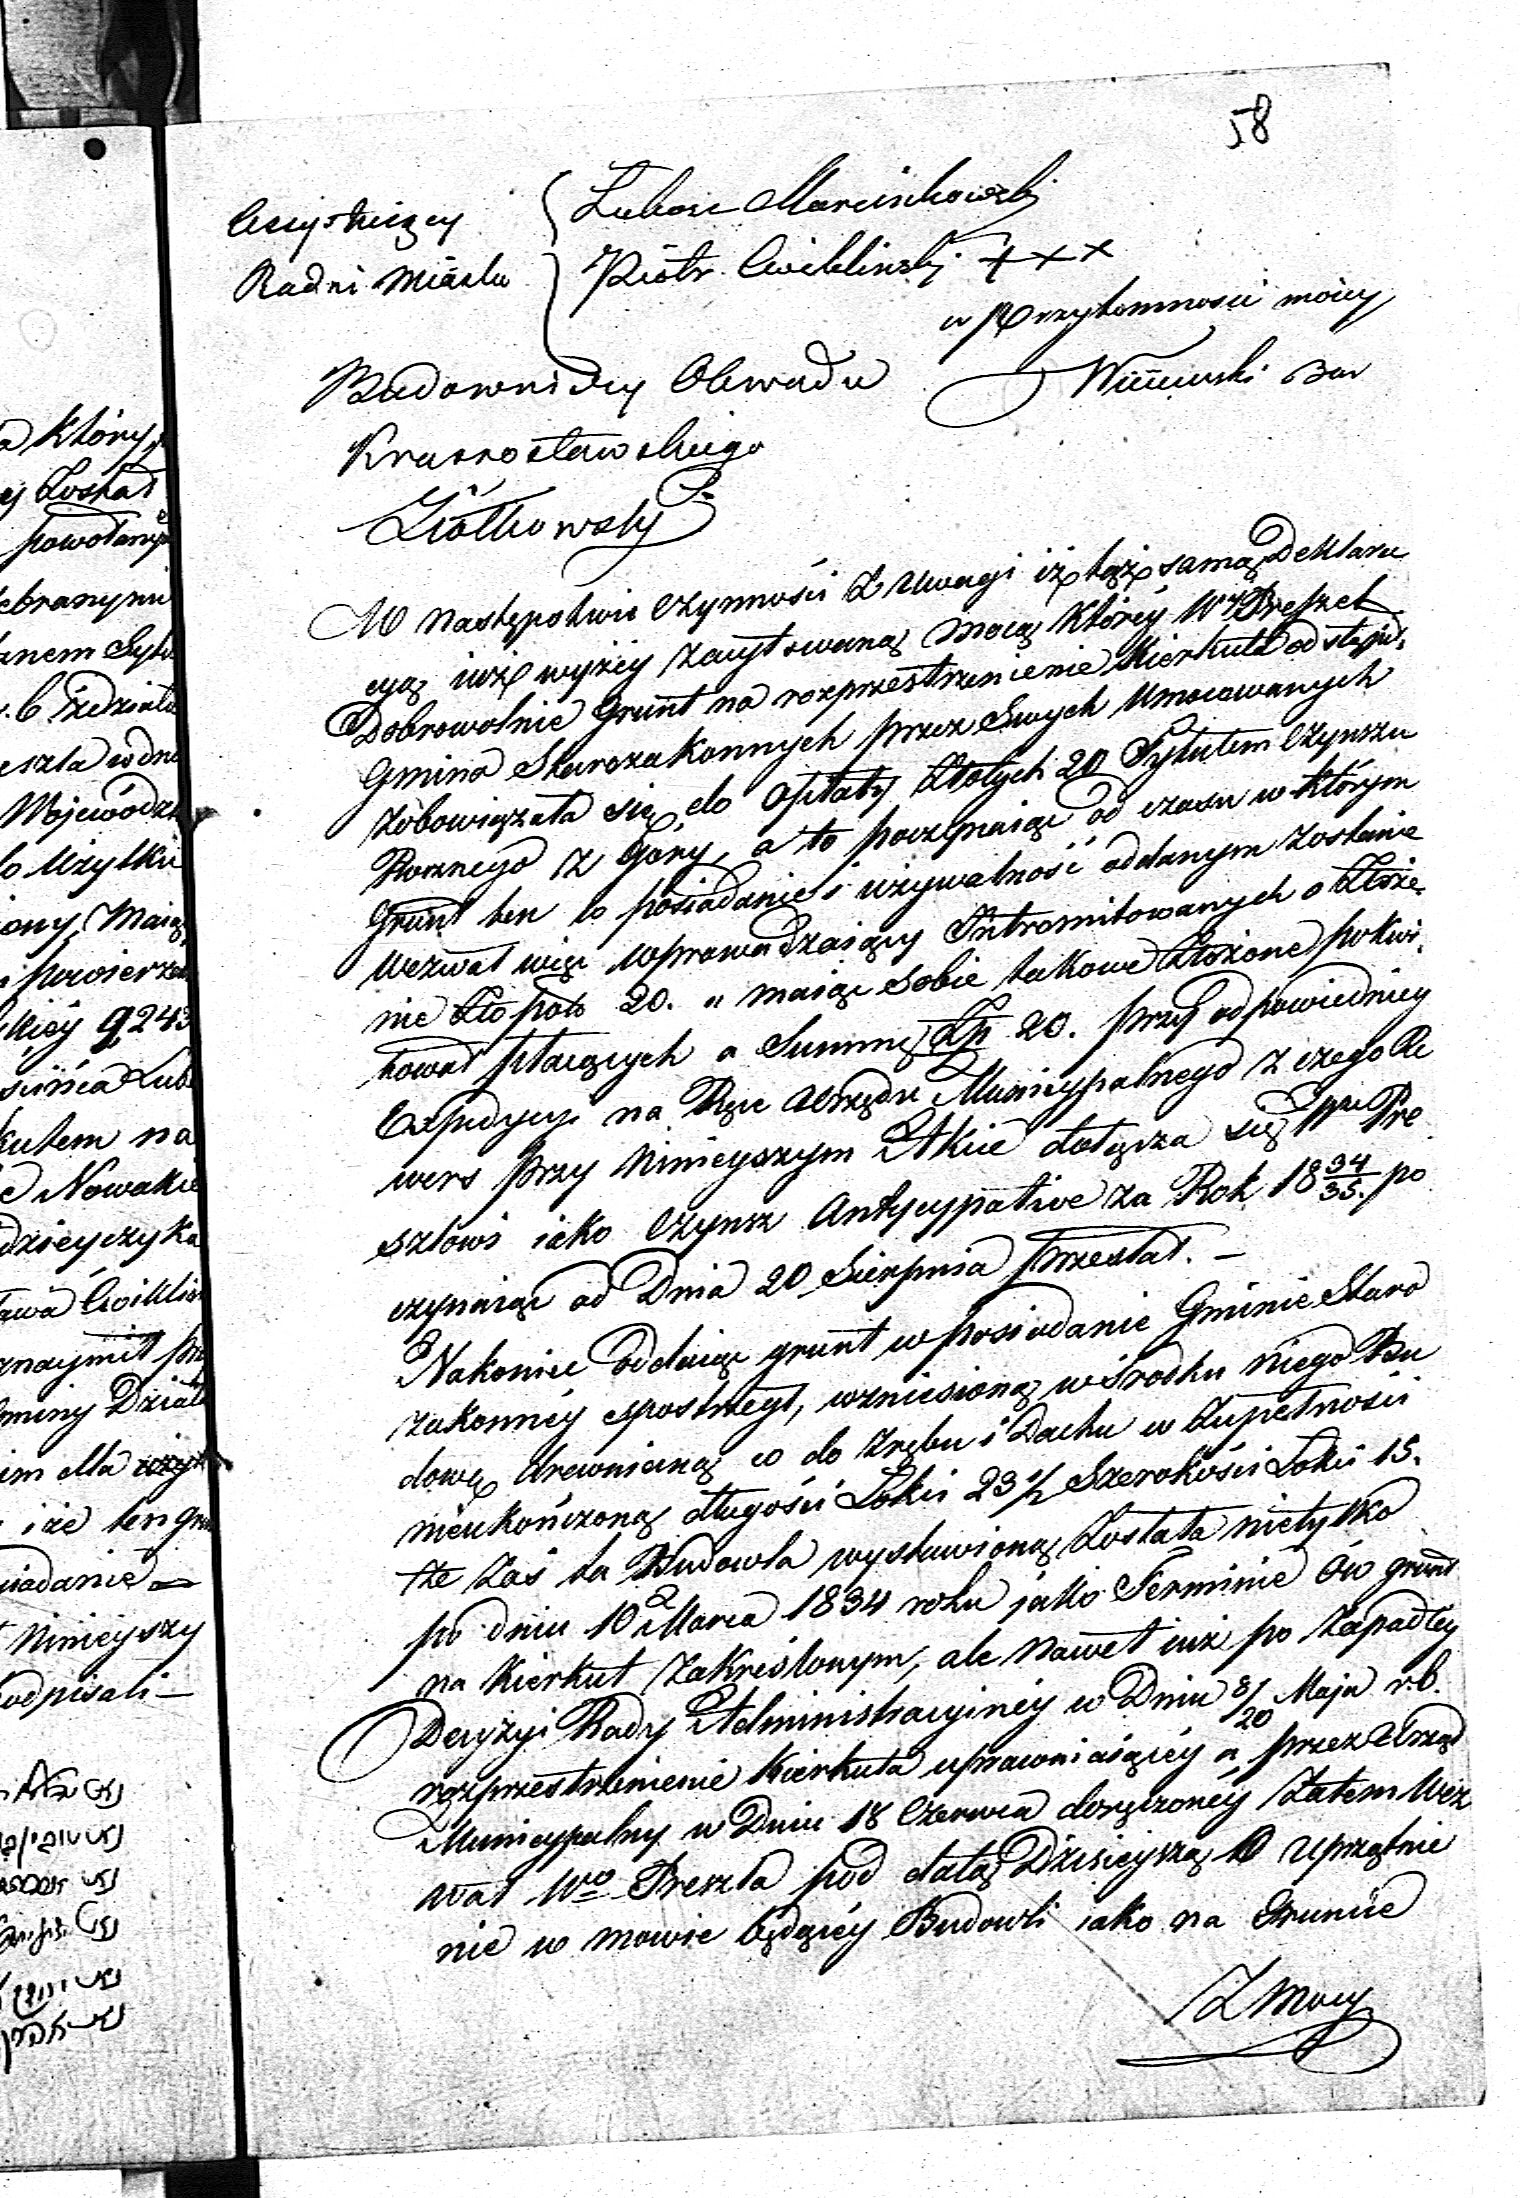 58
Assystuiący
Radni Miasta
Łukasz Marcinkowski
Piotr Cwiklinski + + +
w Przytomnosci moiey
Wiszniewski
Budowniczy Obwodu
Krasnostawskiego
Ziółkowski
W następstwie czynności z uwagi iż tąż samą Deklara
cyą iuż wyżey zacytowaną mocą któréy Wy Preszel
Dobrowolnie Grunt na rozprzestrzenienie Kierkuta odstąpił,
Gmina Starozakonnych przez Swych Umocowanych
zobowiązała się do opłaty Złotych 20 Tytułem Czynszu
Rocznego z Góry, a to poczynaiąc od czasu w którym
Grunt ten w posiadanie i używalność oddanym zostanie
Wezwał więc wprowadzaiący Intromitowanych o złoże
nie Zło pols 20. „ maiąc sobie takowe złożone pokwi
tował płacących a Summę Zp 20. przy odpowiedniey
Expedycyi na Ręce Urzędu Municypalnego z czego Re
wers przy niniejszym Akcie dołącza się Wu Pre
szlowi iako Czynsz Antycypative za Rok 18 34/35. po
czynaiąc od Dnia 20 Sierpnia przesłał. –
Nakoniec oddaiąc grunt w posiadanie Gminie Staro
zakonnéy spostrzegł, wzniesioną w środku niego Bu
dowę drewnianą co do zrębu i Dachu w zupełności
nieukończoną długości Łokci 23 1/2 Szerokości Łokci 15.
że zaś ta Budowla wystawioną została nietylko
po dniu 10 Marca 1834 roku jako Terminie ów grunt
na Kierkut zakreślonym, ale nawet iuż po zapadłey
Decyzyi Rady Administracyinéy w Dniu 8/20 Maja r.b.
rozprzestrzenienie Kierkuta uprawniaiącéy a przez Urząd
Municypalny w Dniu 18 Czerwca doręczonéy zatem Wez
wał Wo Preszla pod datą Dzisieyszą o uprzątnie
nie w mowie będącéy Budowli iako na Gruncie
Z Mocy
a który
ey Został
powołanym
ebranymi
anem
eszla
Wojewódz
do Użytku
Maiąc
powierze
9243
kutem na
Nowakie
dzieyczyka
Cwiklin
Gminy
im dla
iże ten gru
iadanie
niniejszy
podpisali –